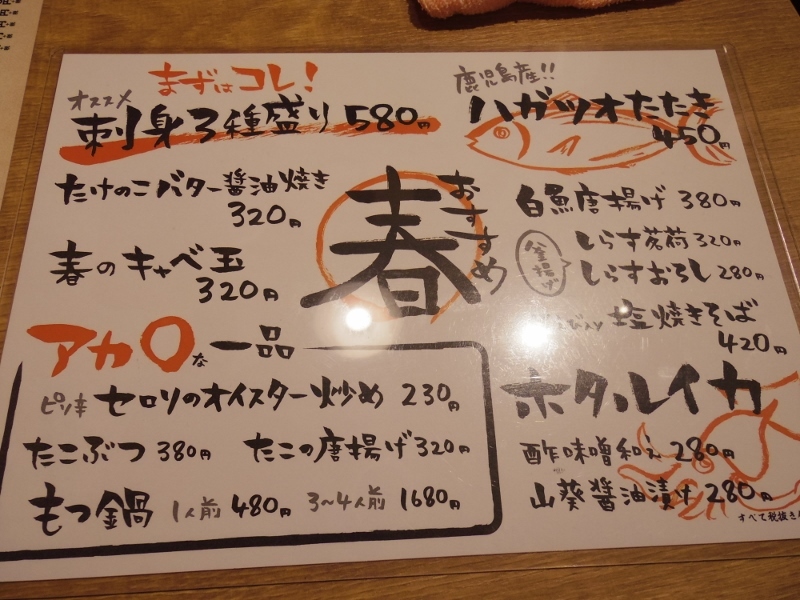 まずはコレ!
オススメ
刺身3種盛り 580円
たけのこバター醤油焼き
320円
春のキャベ玉
320円
春
おすすめ
鹿児島産!!
ハガツオたたき
450円
白魚唐揚げ 380円
釜揚げ
しらす茗荷 320円
しらすおろし 280円
塩焼きそば
420円
ホタルイカ
酢味噌和え 280円
山葵醤油漬け 280円
すべて税抜き
アカ〇な一品
ピリ辛 セロリのオイスター炒め 230円
たこぶつ 380円
たこの唐揚げ 320円
もつ鍋 1人前 480円 3~4人前 1680円